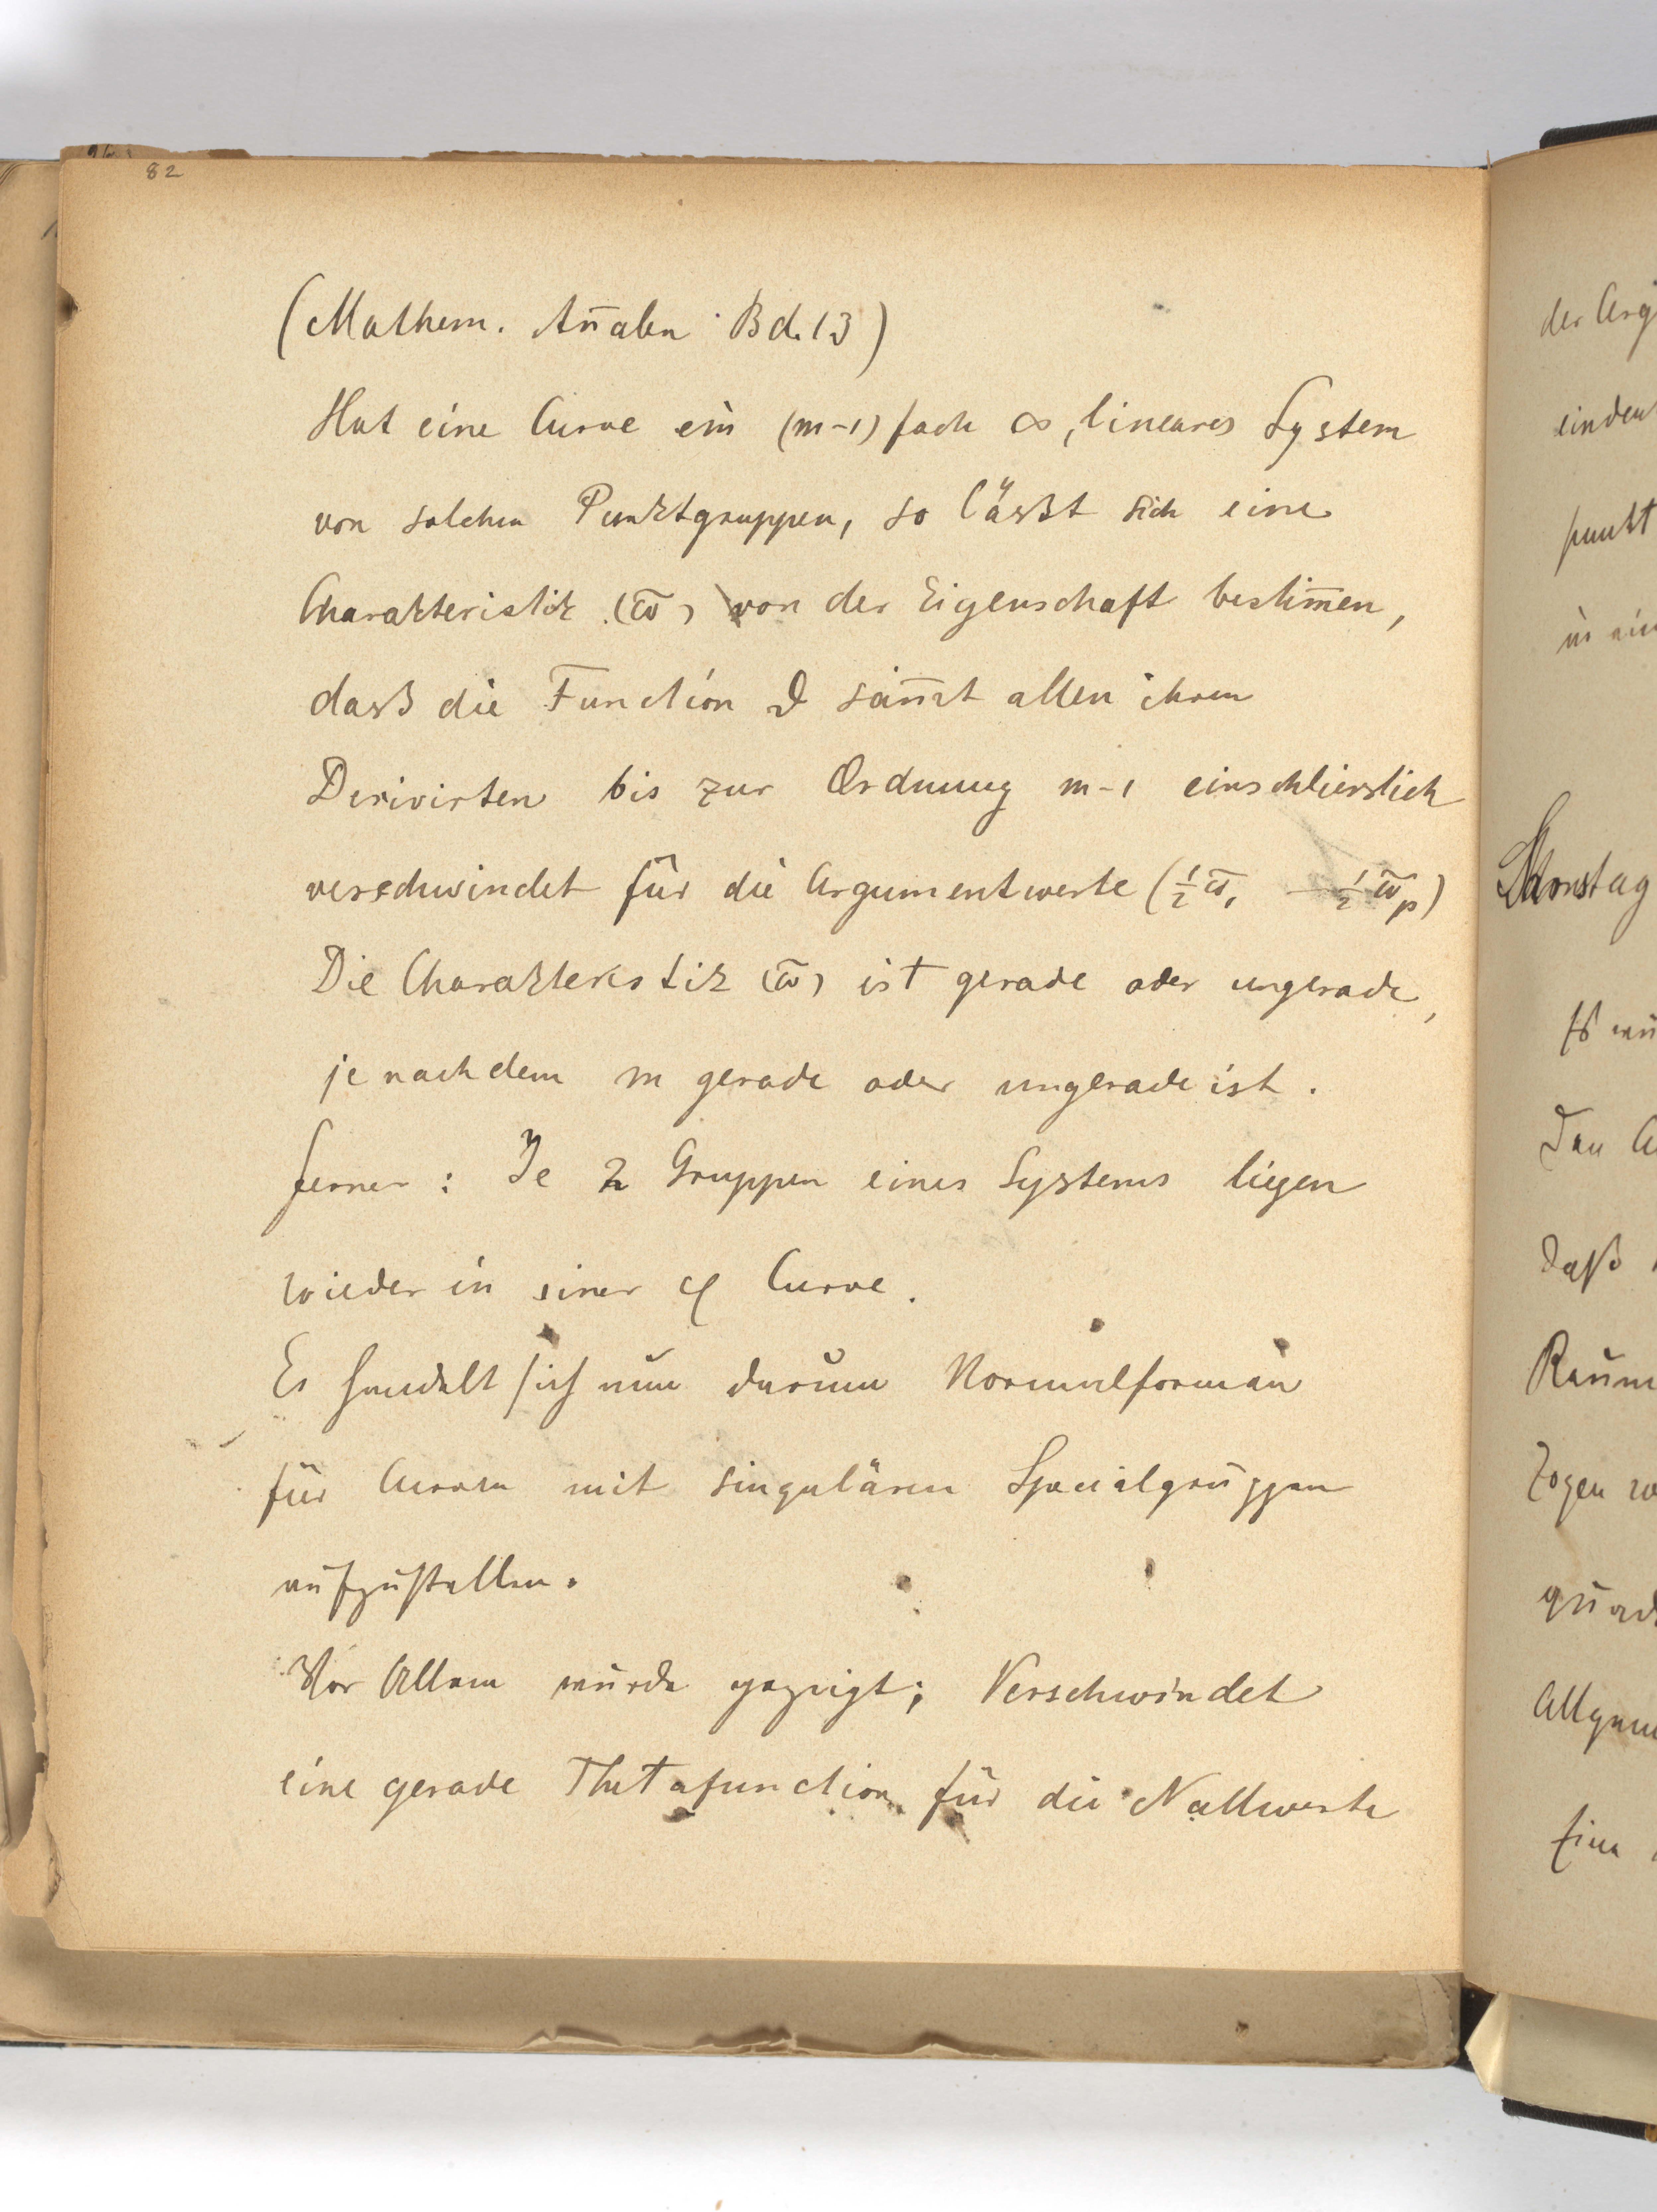 82
(Mathem. Añalen Bd. 13)
Hat eine Curve ein (m-1) fach ∞, lineares System
von solchen Punktgruppen, so lässt sich eine
Charakteristik (ω̄) von der Eigenschaft bestim̅en,
dasß die Function ϑ sam̅t allen ihren
Derivirten bis zur Ordnung m-1 einschliesslich
verschwindet für die Argumentwerte (½ω̄₁ — ½ω̄ₚ)
Die Charakteristik (ω̄) ist gerade oder ungerade,
je nachdem m gerade oder ungerade ist.
ferner: Je 2 Gruppen eines Systems liegen
wieder in einer φ Curve.
Es handelt sich nun darum Normalformen
für Curven mit singulären Specialgruppen
aufzustellen.
Vor Allem wurde gezeigt; Verschwindet
eine gerade Thetafunction für die Nullwerte
der Arg
punkt
Samstag
Den
daß
Raum
Allgem